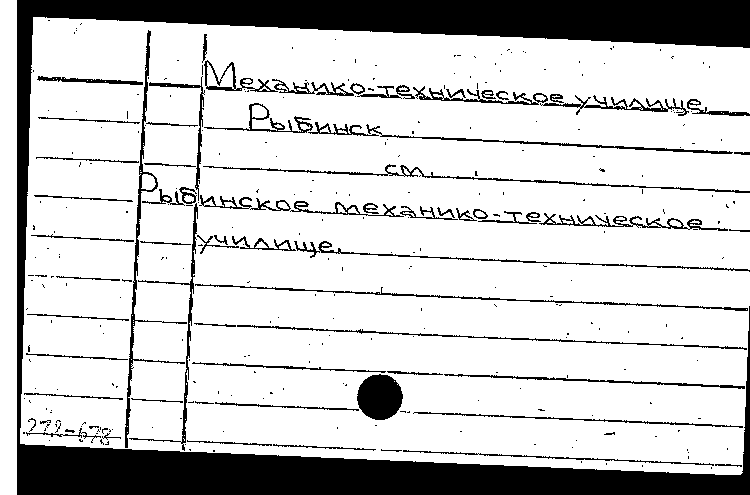 Механико-техническое училище,
Рыбинск
см.
Рыбинское механико-техническое
училище.
272-678